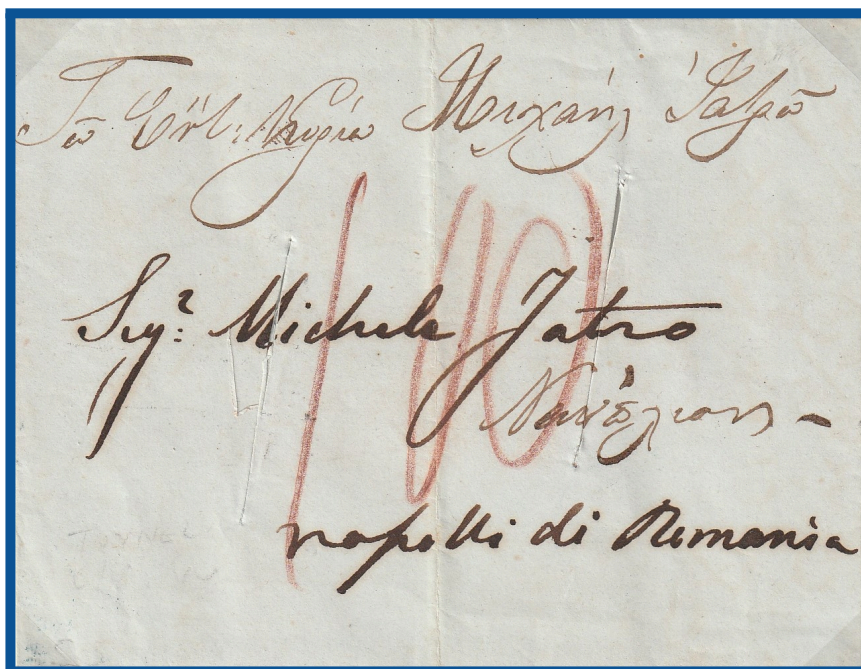 Τῶ Εὐγ: Κυρίω Μιχαήλ Ἰατρῶ
100
Sigr: Michele Jatro
Ναύπλιον -
napolli di Romania